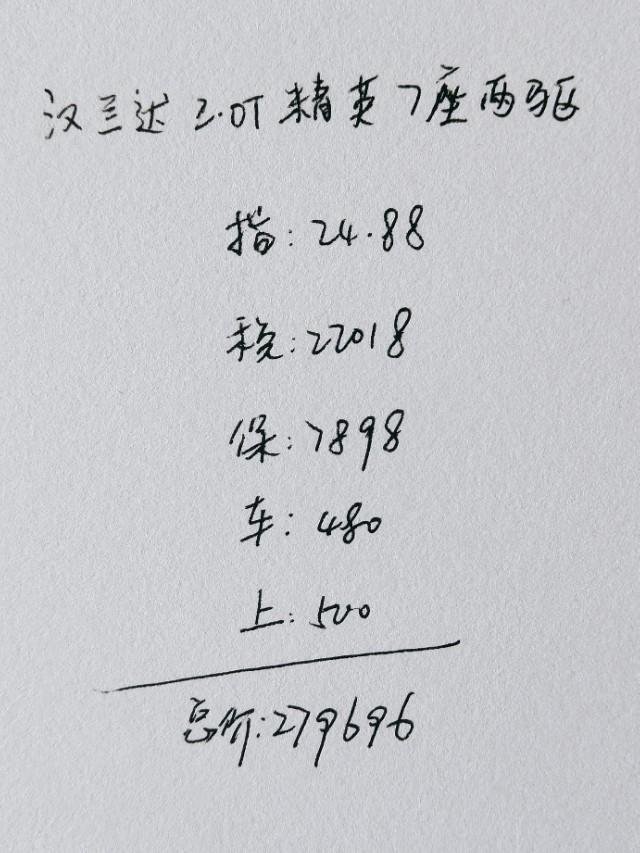 汉兰达 2.0T 精英 7座两驱
指: 24.88
税: 22018
保: 7898
车: 480
上: 500
总价: 279696